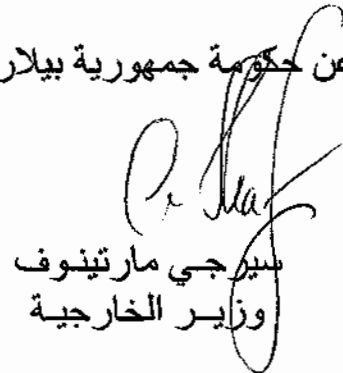 عن حكومة جمهورية بيلار
سيرجي مارتينوف
وزير الخارجية